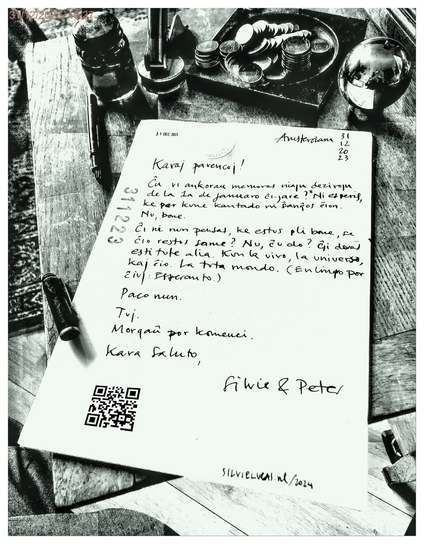 31 DEC 2023
Amsterdam 31
12
20
23
Karaj parencoj!
311223
Ĉu vi ankorau memoras niajn dezirojn
de la 1a de januaro ĉi-jare? "Ni esperis,
ke per kune kantado ni ŝanĝos ĉion.
Nu, bone.
Ĉi ni nun pensas, ke estus pli bone, se
ĉio restos same? Nu, ĉu do? Ĝi devas
esti tute alia. Kun la vivo, la universo,
kaj ĉio. La tuta mondo. (En lingvo por
ĉiuj: Esperanto.)
Paco nun.
Tuj.
Morgaŭ por komenci.
Kara Saluto,
Silvie & Peter
SILVIELUCAS.nl/2024